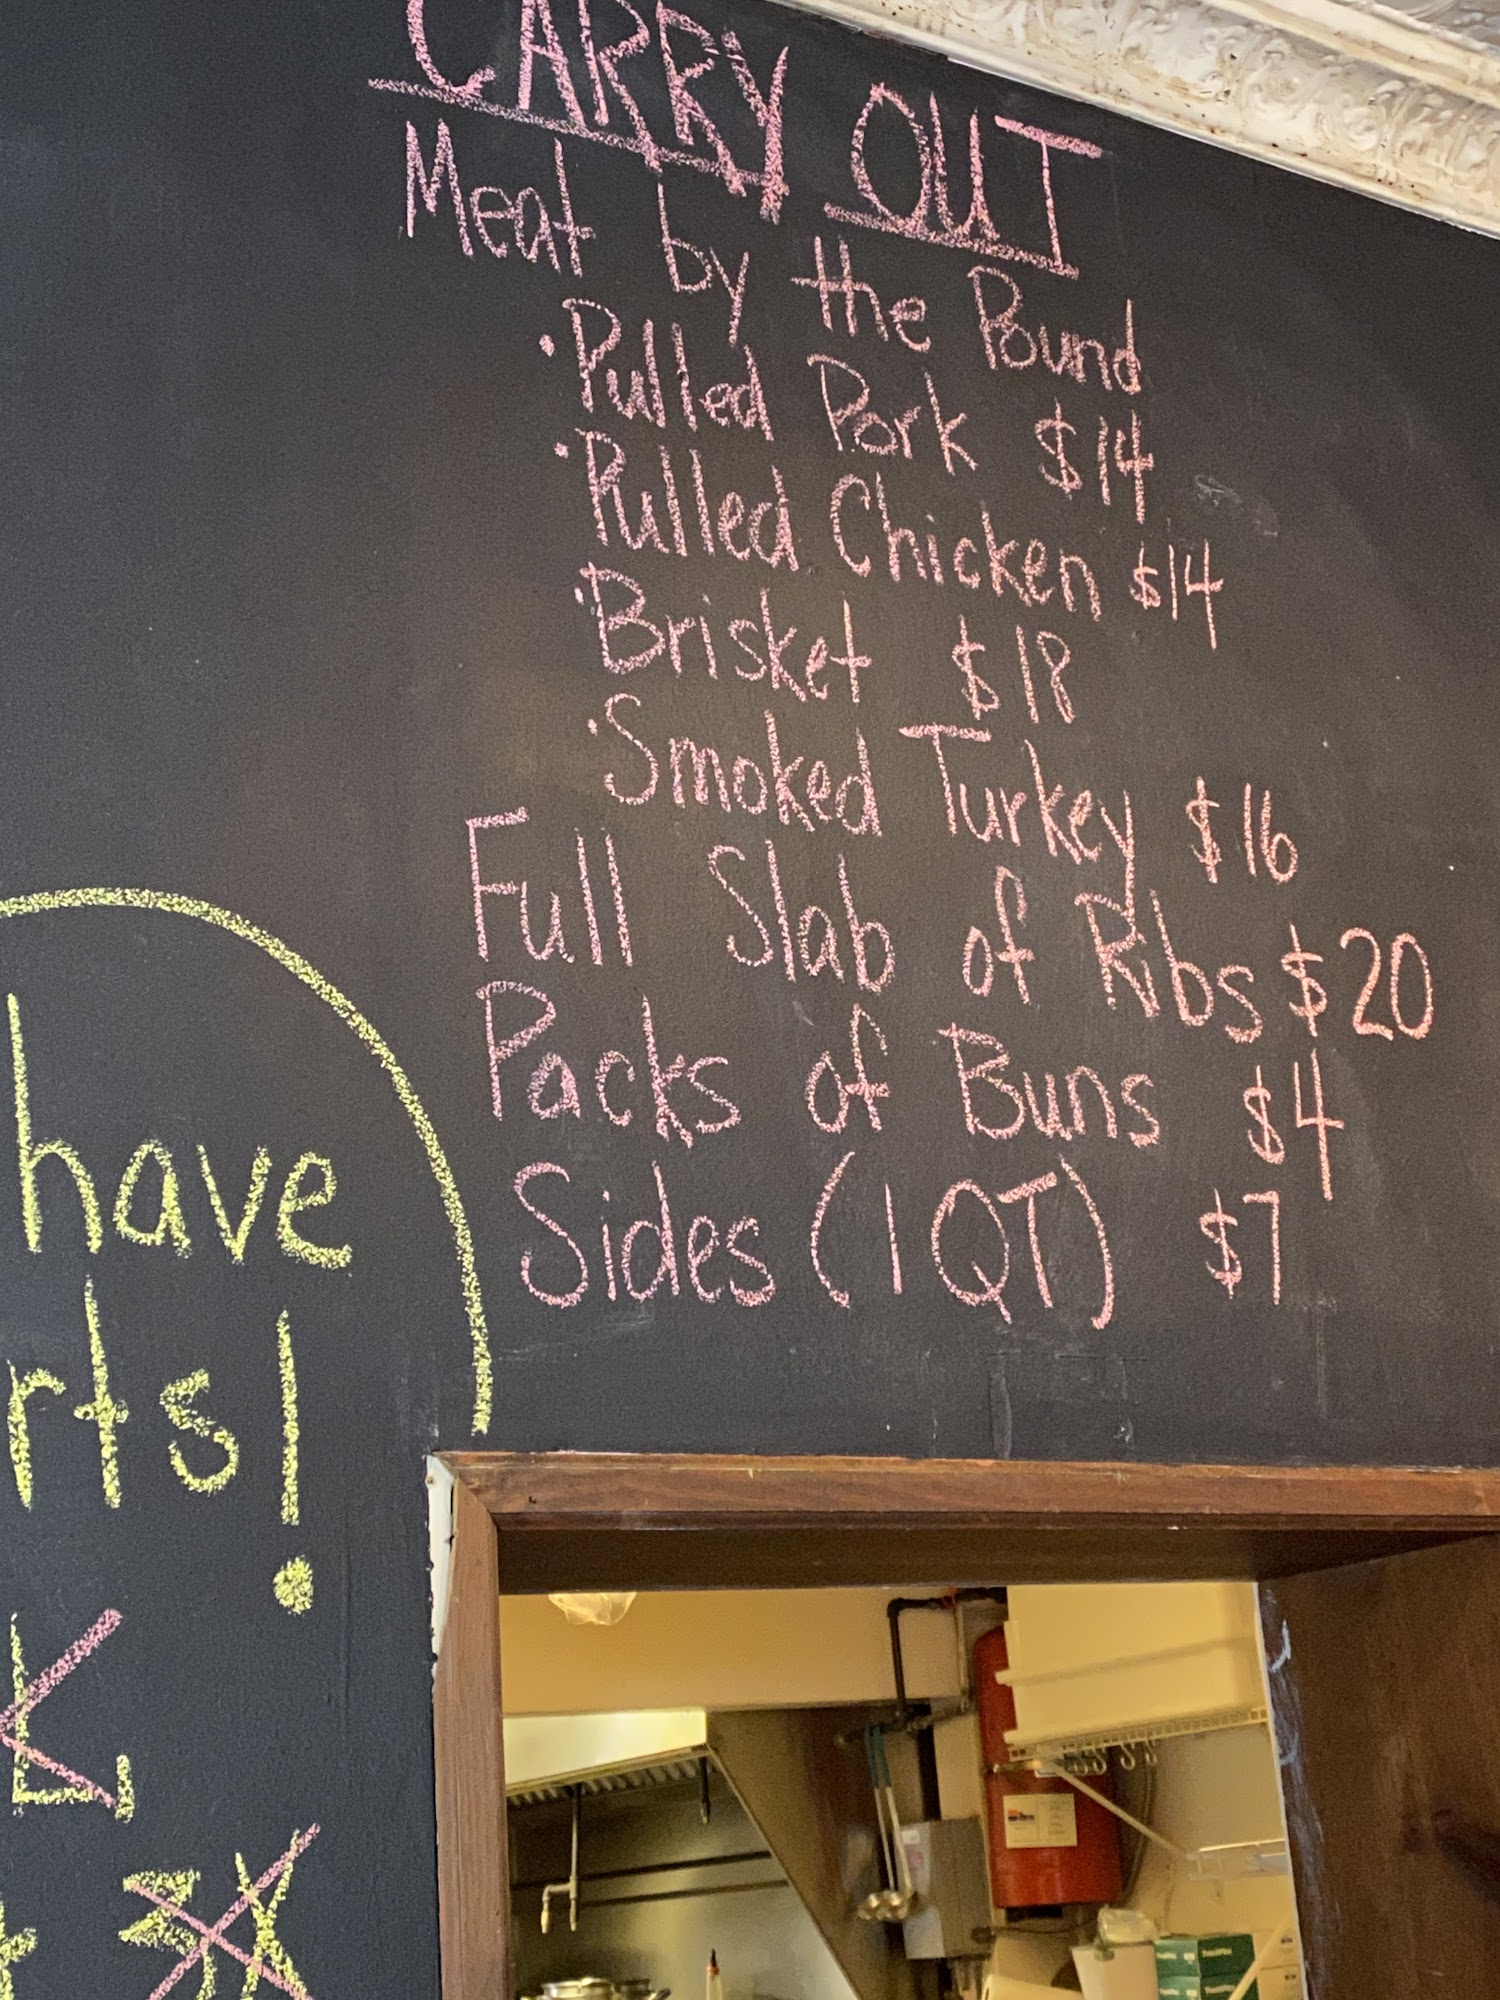 CARRY OUT
Meat by the Pound
• Pulled Pork $14
• Pulled Chicken $14
• Brisket $18
• Smoked Turkey $16
Full Slab of Ribs $20
Packs of Buns $4
Sides (1 QT) $7
have
rts!